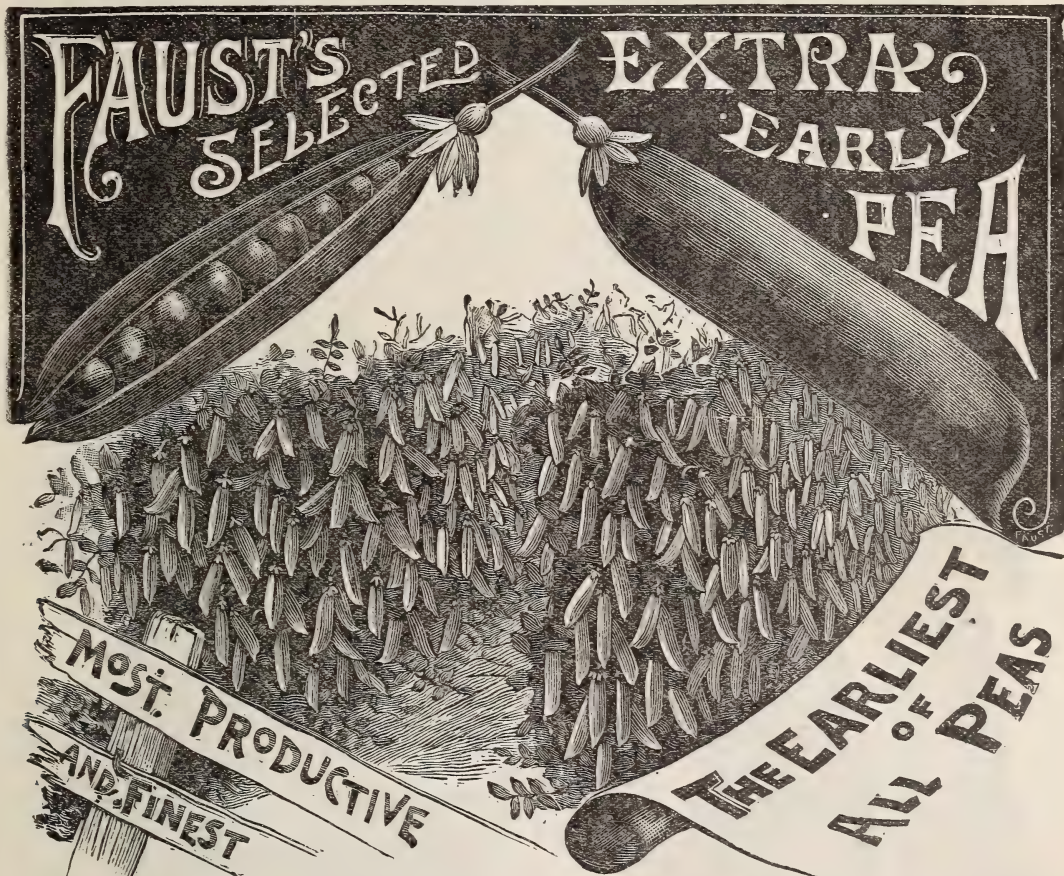 FAUST'S
SELECTED
EXTRA
EARLY
PEA
FAUST
MOST. PRODUCTIVE
AND, FINEST
THE EARLIEST
OF
ALL PEAS